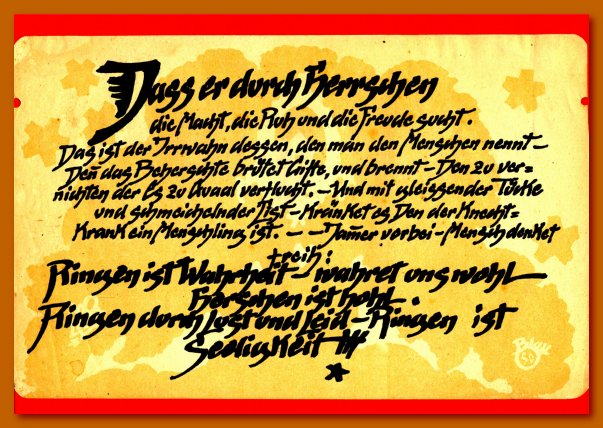 Dass er durch Herrschen
die Macht, die Ruh und die Freude sucht.
Das ist der Irrwahn dessen, den man den Menschen nennt –
Deñ das Beherschte brütet Gifte, und brennt – Den zu ver=
nichten der Es zu Quaal verflucht. – Und mit gleissender Tücke
und schmeichelnder List – Kränket es Den der Knecht=
Krank ein Menschling ist. – – Jam̃er vorbei – Mensch denket
freih:
Ringen ist Wahrheit – wahret uns wohl
Herschen ist hohl.
Ringen durch Lust und Leid – Ringen ist
Seeligkeit !!!
50